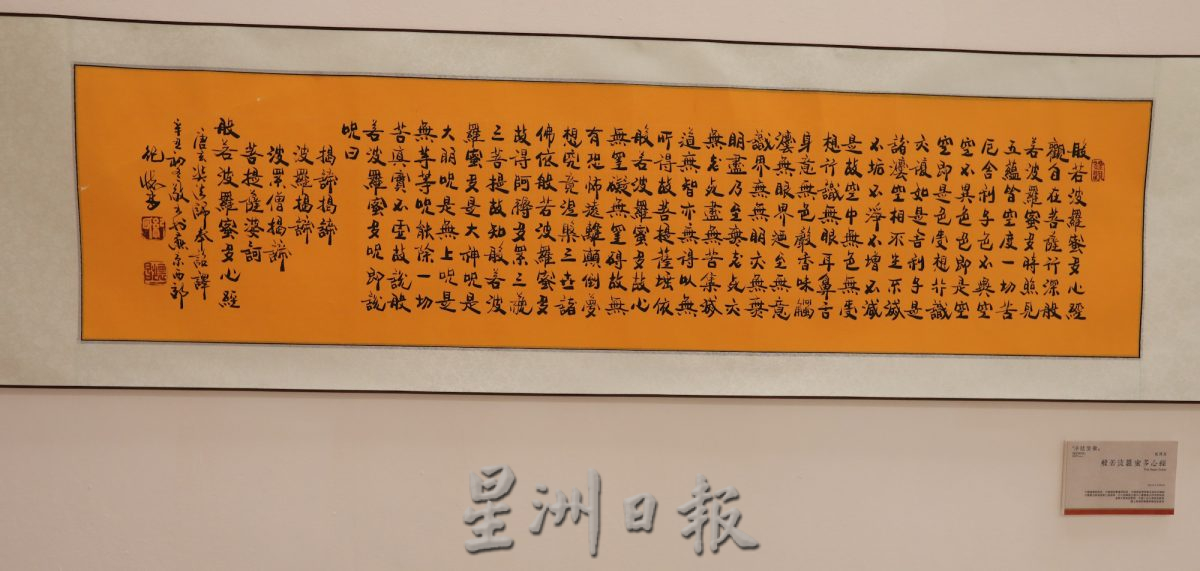 般若波羅蜜多心經
觀自在菩薩行深般
若波羅蜜多時照見
五蘊皆空度一切苦
厄舍利子色不異空
空不異色色即是空
空即是色受想行識
亦復如是舍利子是
諸灋空相不生不滅
不垢不淨不增不減
是故空中無色無受
想行識無眼耳鼻舌
身意無色聲香味觸
灋無眼界乃至無意
識界無無明亦無無
明盡乃至無老死亦
無老死盡無苦集滅
道無智亦無得以無
所得故菩提薩埵依
般若波羅蜜多故心
無罣礙無罣碍故無
有恐怖遠離顛倒夢
想究竟涅槃三世諸
佛依般若波羅蜜多
故得阿耨多羅三藐
三菩提故知般若波
羅蜜多是大神呪是
大明呪是無上呪是
無等等呪能除一切
苦真實不虛故說般
若波羅蜜多呪即說
呪曰
揭諦揭諦
波羅揭諦
波羅僧揭諦
菩提薩婆訶
般若波羅蜜多心經
唐玄奘法師奉詔譯
辛丑初夏敬書於京西郊
般若波羅蜜多心經
星洲日报